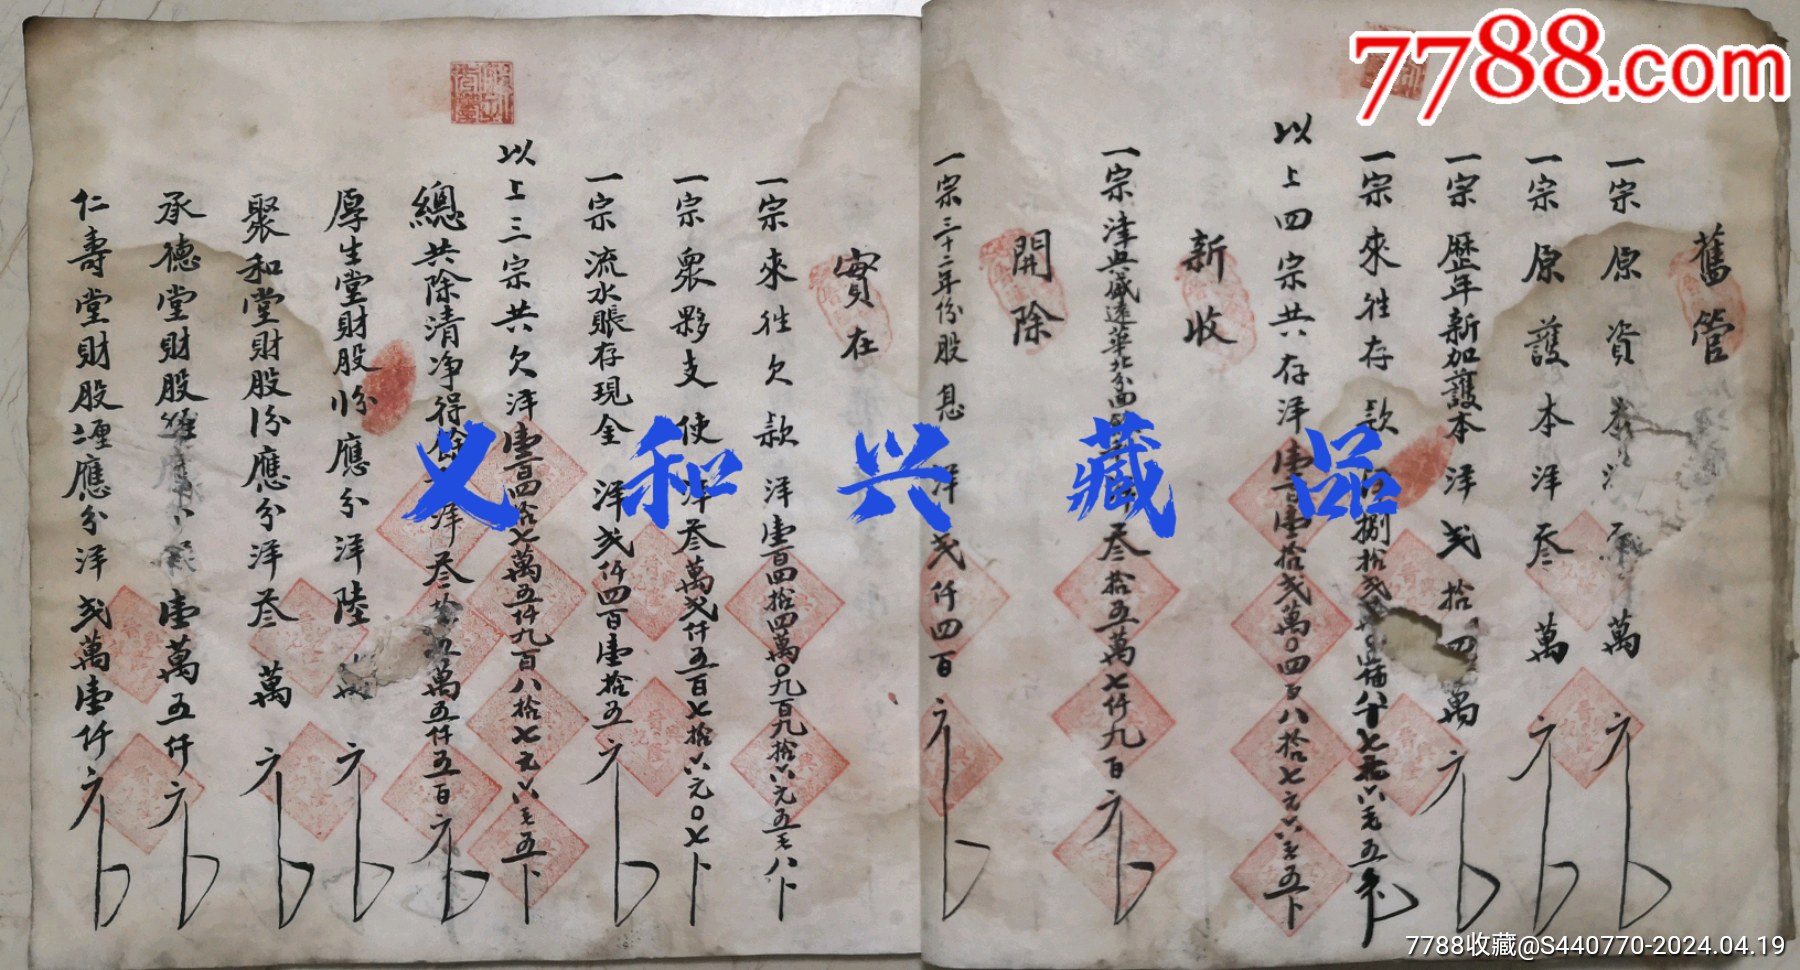 7788.com
舊管
一宗原資本洋 萬 元
一宗原護本洋叁萬元
一宗歷年新加護本洋弍拾四萬元
一宗來往存款洋捌拾弍萬
以上四宗共存洋壹百壹拾弍萬〇四百八拾七元六毛五卜
新收
一宗津 盛遠華北分 洋叁拾五萬七仟九百元
開除
一宗三十二年份股息洋弍仟四百元
實在
一宗來往欠款洋壹百四拾四萬〇九百九拾六元五毛八卜
一宗衆夥支使洋叁萬弍仟五百七拾六元〇七卜
一宗流水賬存現金洋弍仟四百壹拾五元
以上三宗共欠洋壹百四拾七萬五仟九百八拾七元六毛五卜
總共除清净得餘 洋叁拾五萬五仟五百元
厚生堂財股 份應分洋陸萬元
聚和堂財股 份應分洋叁萬元
承德堂財股 應 洋壹萬五仟元
仁壽堂財股 厘應分洋弍萬壹仟元
义和兴藏品
7788收藏@S440770-2024.04.19